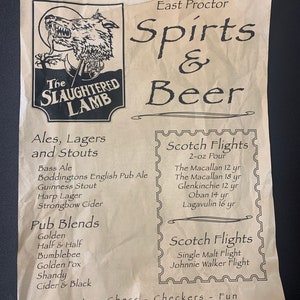 East Proctor
Spirts
&
Beer
The
SLAUGHTERED
LAMB
Ales, Lagers
and Stouts
Bass Ale
Boddingtons English Pub Ale
Guinness Stout
Harp Lager
Strongbow Cider
Pub Blends
Golden
Half & Half
Bumblebee
Golden Fox
Shandy
Cider & Black
Scotch Flights
2-oz Pour
The Macallan 12 yr
The Macallan 18 yr
Glenkinchie 12 yr
Oban 14 yr
Lagavulin 16 yr
Scotch Flights
Single Malt Flight
Johnnie Walker Flight
Chess - Checkers - Fun